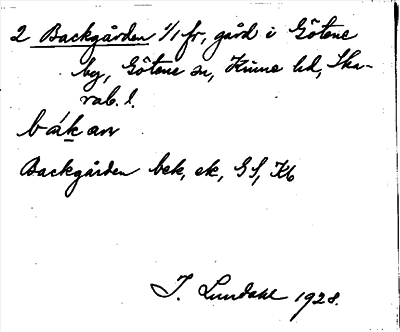 2 Backgården 1/1 fr, gård i Götene
by, Götene sn, Kinne hd, Ska-
rab. l.
bákan
Backgården bek, ek, GS, Kb
I. Lundahl 1928.